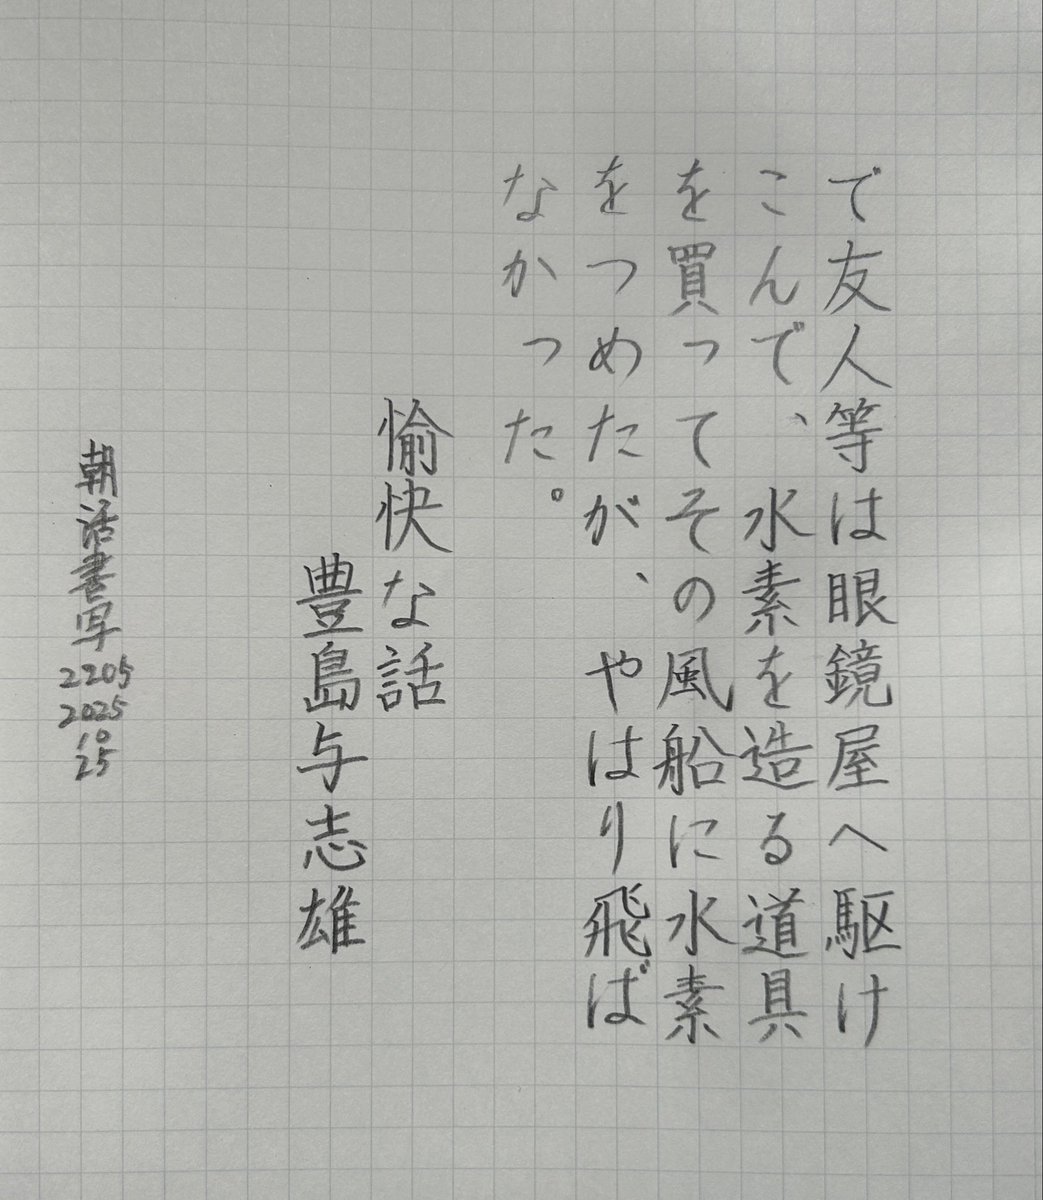 で友人等は眼鏡屋へ駆け
こんで、水素を造る道具
を買ってその風船に水素
をつめたが、やはり飛ば
なかった。
愉快な話
豊島与志雄
朝活書写
2205
2025
10
25